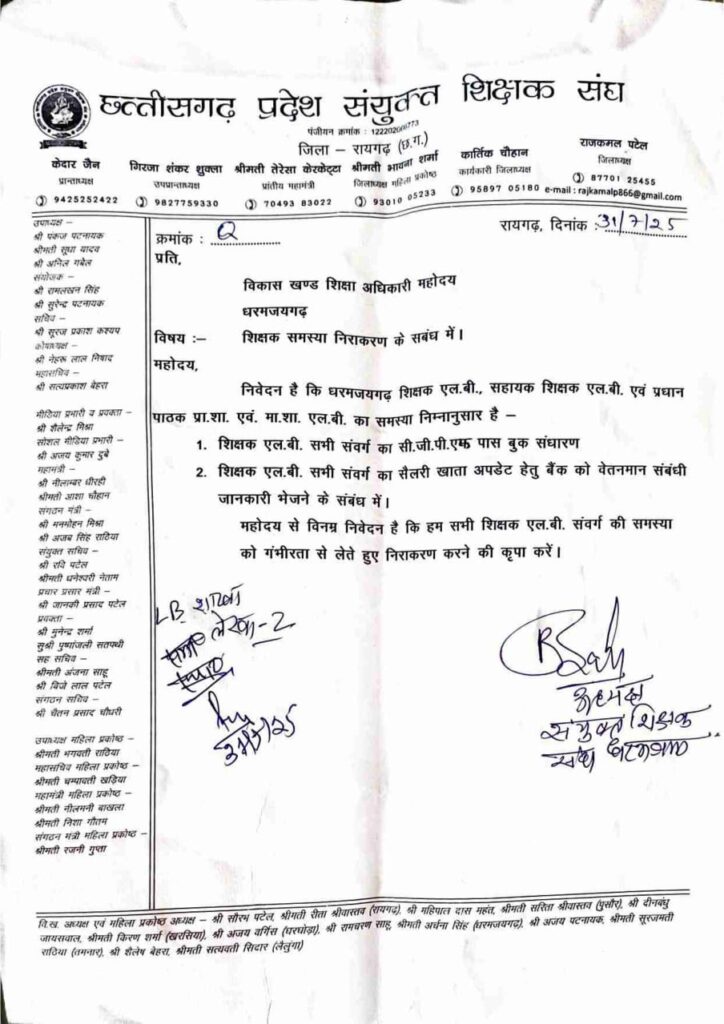 छत्तीसगढ़ प्रदेश संयुक्त शिक्षक संघ
पंजीयन क्रमांक : 122202000773
जिला – रायगढ़ (छ.ग.)
केदार जैन
प्रान्ताध्यक्ष
9425252422
गिरजा शंकर शुक्ला
उपप्रान्ताध्यक्ष
9827759330
श्रीमती तेरेसा केरकेट्टा
प्रांतीय महामंत्री
70493 83022
श्रीमती भावना शर्मा
जिलाध्यक्ष महिला प्रकोष्ठ
93010 05233
कार्तिक चौहान
कार्यकारी जिलाध्यक्ष
95897 05180
राजकमल पटेल
जिलाध्यक्ष
87701 25455
e-mail : rajkamalp866@gmail.com
उपाध्यक्ष –
श्री पंकज पटनायक
श्रीमती सुधा यादव
श्री अनिल गबेल
संयोजक –
श्री रामलखन सिंह
श्री सुरेन्द्र पटनायक
सचिव –
श्री सूरज प्रकाश कश्यप
कोषाध्यक्ष –
श्री नेहरू लाल निषाद
महासचिव –
श्री सत्यप्रकाश बेहरा
मीडिया प्रभारी व प्रवक्ता –
श्री शैलेन्द्र मिश्रा
सोशल मीडिया प्रभारी –
श्री अजय कुमार दुबे
महामंत्री –
श्री नीलाम्बर धीरही
श्रीमती आशा चौहान
संगठन मंत्री –
श्री मनमोहन मिश्रा
श्री अजब सिंह राठिया
संयुक्त सचिव –
श्री रवि पटेल
श्रीमती धनेश्वरी नेताम
प्रचार प्रसार मंत्री –
श्री जानकी प्रसाद पटेल
प्रवक्ता –
श्री मुनेन्द्र शर्मा
सुश्री पुष्पांजली सतपथी
सह सचिव –
श्रीमती अंजना साहू
श्री बिजे लाल पटेल
संगठन सचिव –
श्री चैतन प्रसाद चौधरी
उपाध्यक्ष महिला प्रकोष्ठ –
श्रीमती भगवती राठिया
महासचिव महिला प्रकोष्ठ –
श्रीमती चम्पावती खड़िया
महामंत्री महिला प्रकोष्ठ –
श्रीमती नीलमनी बाखला
श्रीमती निशा गौतम
संगठन मंत्री महिला प्रकोष्ठ –
श्रीमती रजनी गुप्ता
क्रमांक :
रायगढ़, दिनांक :31/7/25
प्रति,
विकास खण्ड शिक्षा अधिकारी महोदय
धरमजयगढ़
विषय :– शिक्षक समस्या निराकरण के सबंध में।
महोदय,
निवेदन है कि धरमजयगढ़ शिक्षक एल.बी., सहायक शिक्षक एल.बी. एवं प्रधान
पाठक प्रा.शा. एवं. मा.शा. एल.बी. का समस्या निम्नानुसार है –
1. शिक्षक एल.बी. सभी संवर्ग का सी.जी.पी.एफ पास बुक संधारण
2. शिक्षक एल.बी. सभी संवर्ग का सैलरी खाता अपडेट हेतु बैंक को वेतनमान संबंधी
जानकारी भेजने के संबंध में।
महोदय से विनम्र निवेदन है कि हम सभी शिक्षक एल.बी. संवर्ग की समस्या
को गंभीरता से लेते हुए निराकरण करने की कृपा करें।
LB शाखा
लेखा-2
अध्यक्ष
संयुक्त शिक्षक
संघ
वि.ख. अध्यक्ष एवं महिला प्रकोष्ठ अध्यक्ष – श्री सौरभ पटेल, श्रीमती रीता श्रीवास्तव (रायगढ़), श्री महिपाल दास महंत, श्रीमती सरिता श्रीवास्तव (पुसौर), श्री दीनबंधु
जायसवाल, श्रीमती किरण शर्मा (खरसिया), श्री अजय वर्गिस (घरघोड़ा), श्री रामचरण साहू, श्रीमती अर्चना सिंह (धरमजयगढ़), श्री अजय पटनायक, श्रीमती सूरजमती
राठिया (तमनार), श्री शैलेष बेहरा, श्रीमती सत्यवती सिदार (लैलुंगा)